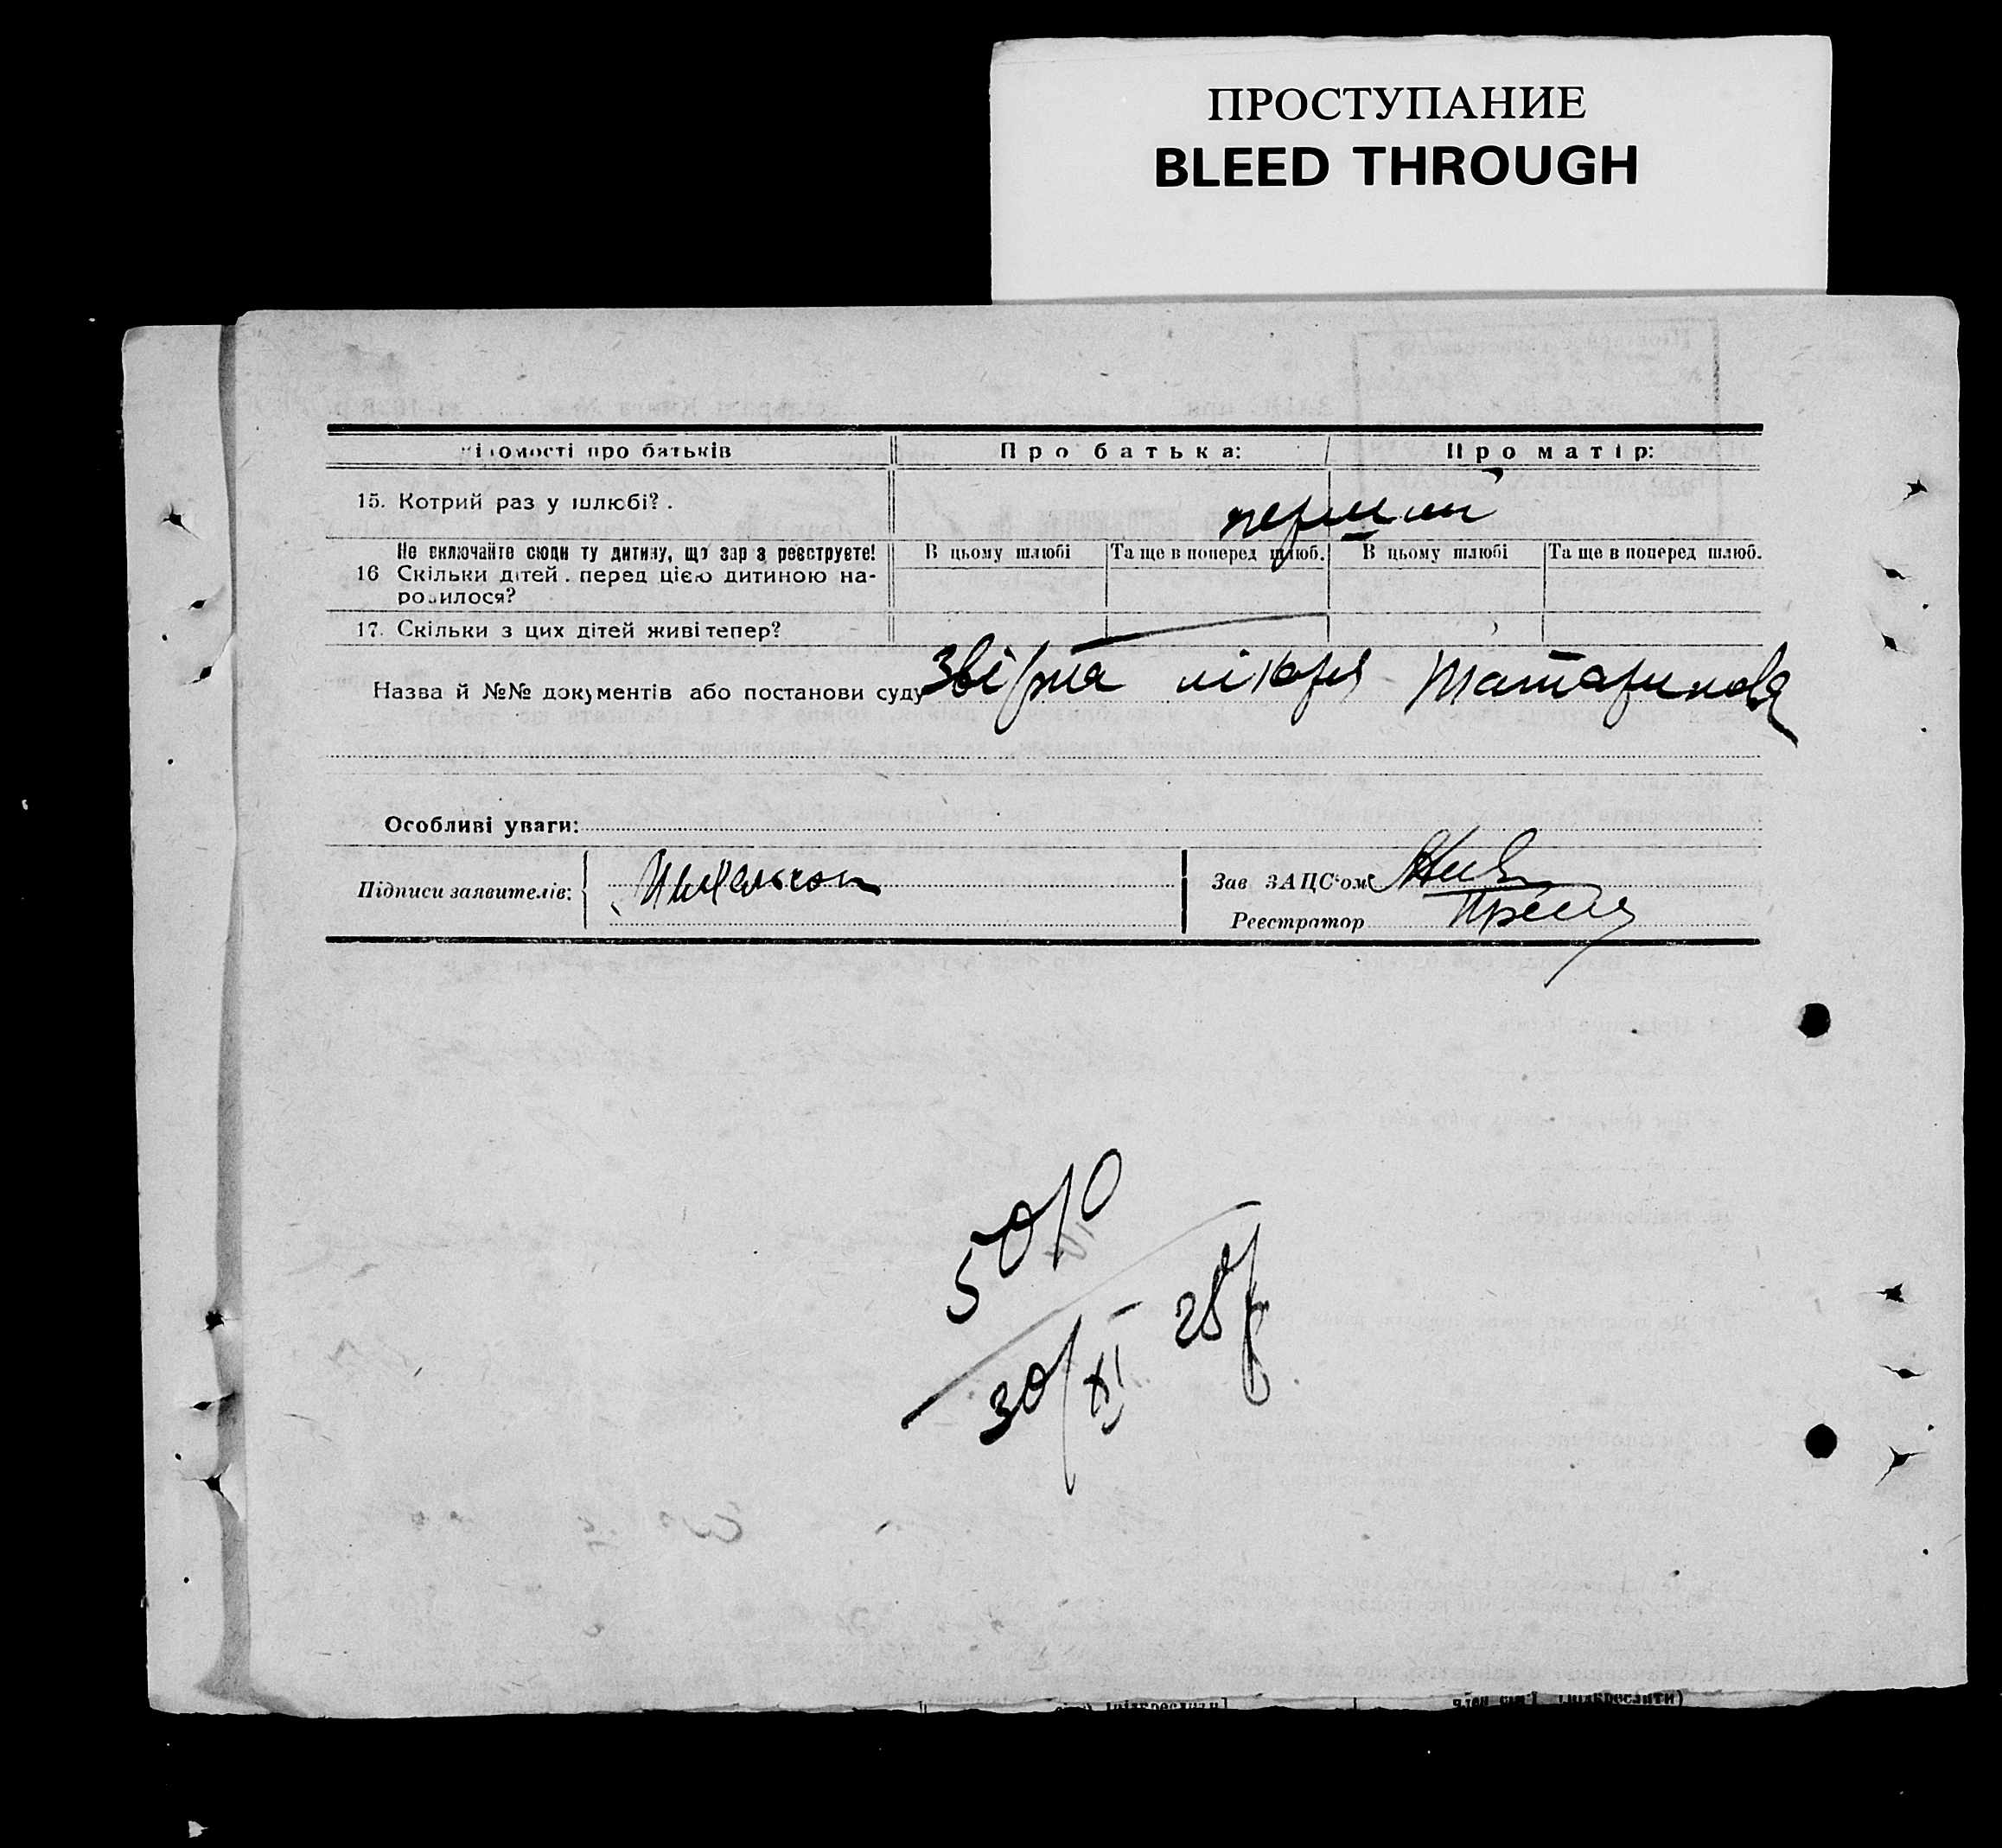 ПРОСТУПАНИЕ
BLEED THROUGH
ідомості про батьків
Про батька:
Про матір:
15. Котрий раз у шлюбі?.
перший
Не включайте сюди ту дитину, що зараз реєструєте!
В цьому шлюбі
Та ще в поперед шлюб.
В цьому шлюбі
Та ще в поперед шлюб.
16 Скільки дітей. перед цією дитиною на-
родилося?
17. Скільки з цих дітей живі тепер?
Назва й №№ документів або постанови суду лікаря Татаринова
Особливі уваги:
Підписи заявителів:
Зав ЗАЦС'ом
Реєстратор
50/0
30/XI 28 р
(підкреслити)
член сім'ї (підкреслити)